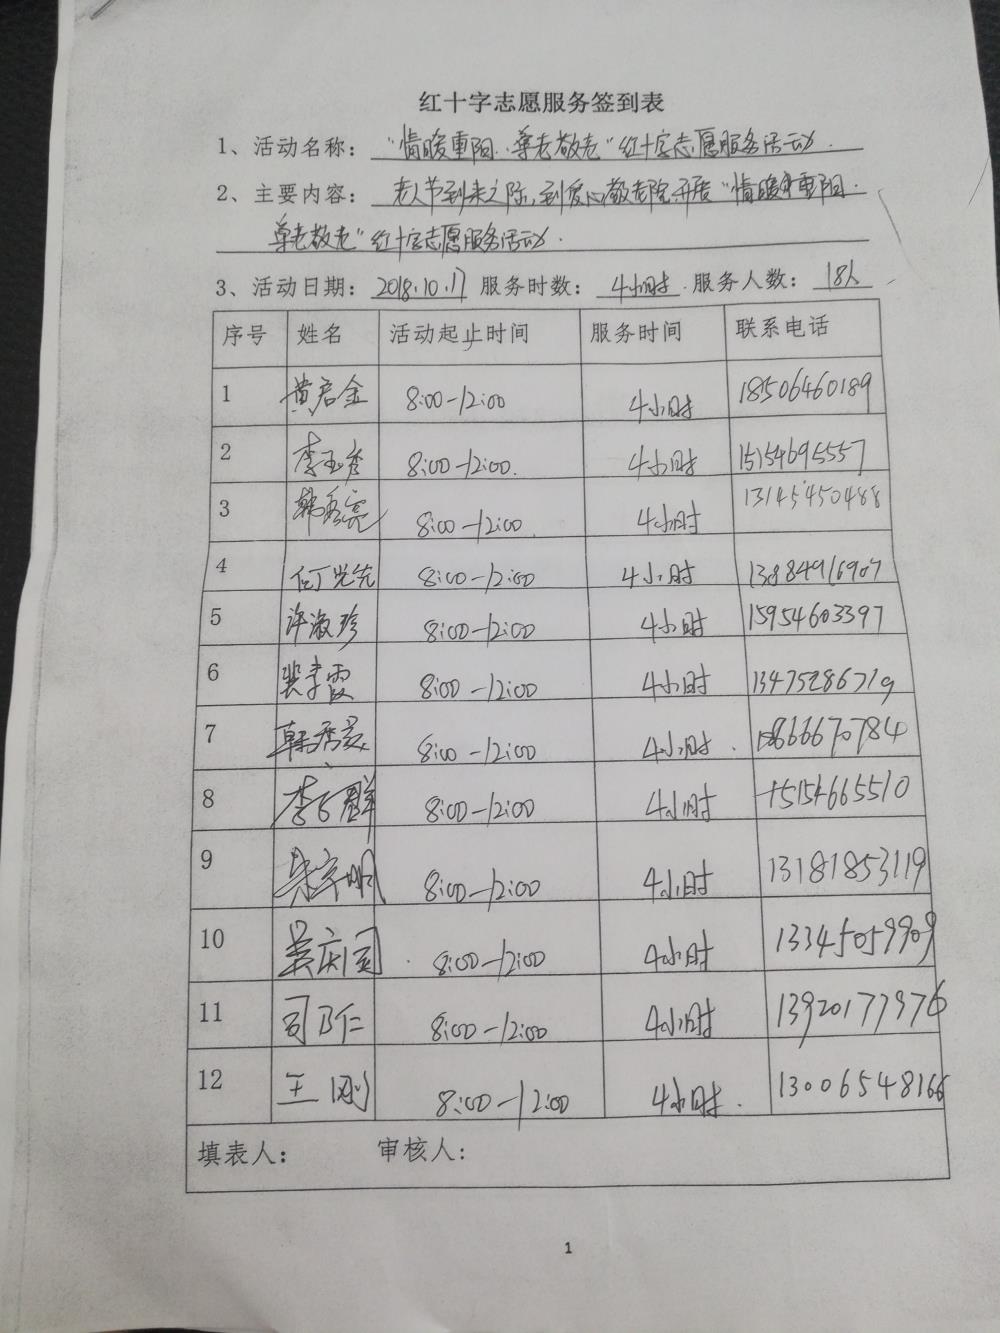 红十字志愿服务签到表
1、活动名称: "情暖重阳、尊老敬老"红十字志愿服务活动.
2、主要内容: 老人节到来之际,到爱心敬老院开展"情暖重阳.
尊老敬老"红十字志愿服务活动.
3、活动日期: 2018.10.17 服务时数: 4小时. 服务人数: 18人
序号 姓名 活动起止时间 服务时间 联系电话
1 黄启金 8:00-12:00 4小时 18506460189
2 李玉秀 8:00-12:00. 4小时 15154695557
3 韩秀亮 8:00-12:00. 4小时 13145450488
4 何光先 8:00-12:00 4小时 13884916907
5 许淑珍 8:00-12:00 4小时 15954603397
6 裴孝霞 8:00-12:00 4小时 13475286719
7 韩秀 8:00-12:00 4小时.
8 李 群 8:00-12:00 4小时 15154665510
9 明 8:00-12:00 4小时 13181853119
10 吴庆国. 8:00-12:00 4小时 13345059909
11 司乃仁 8:00-12:00 4小时 13920177976
12 王刚 8:00-12:00 4小时. 13006548166
填表人: 审核人:
1